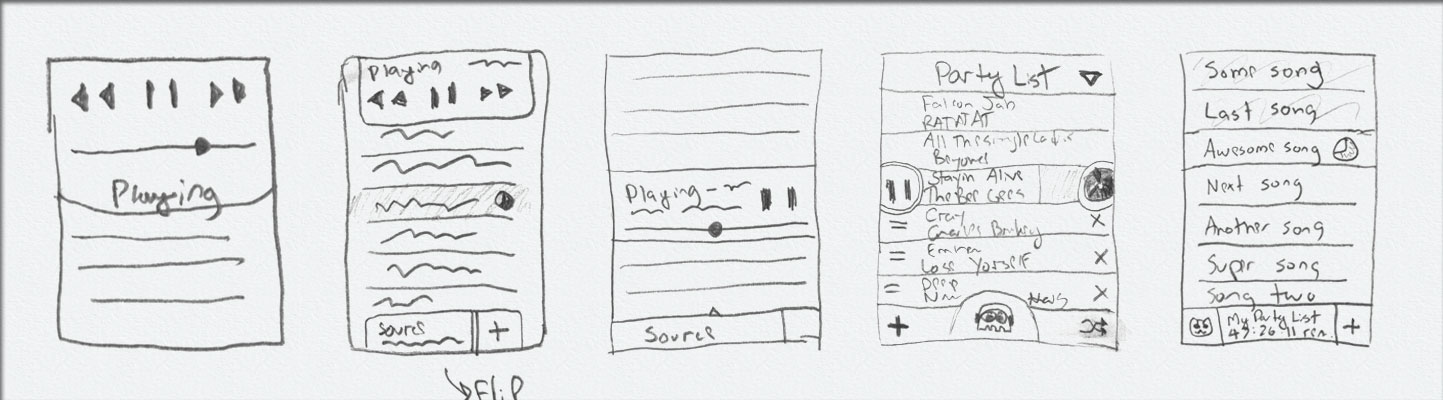 Playing
Playing
Source
Flip
Playing
Source
Party List
Falcon Jab
RATATAT
All The single Ladies
Beyonce
Stayin Alive
The Bee Gees
Cray
Eminem
Lose Yorself
Some song
Last song
Awesome song
Next song
Another song
Super song
Song two
My Party List